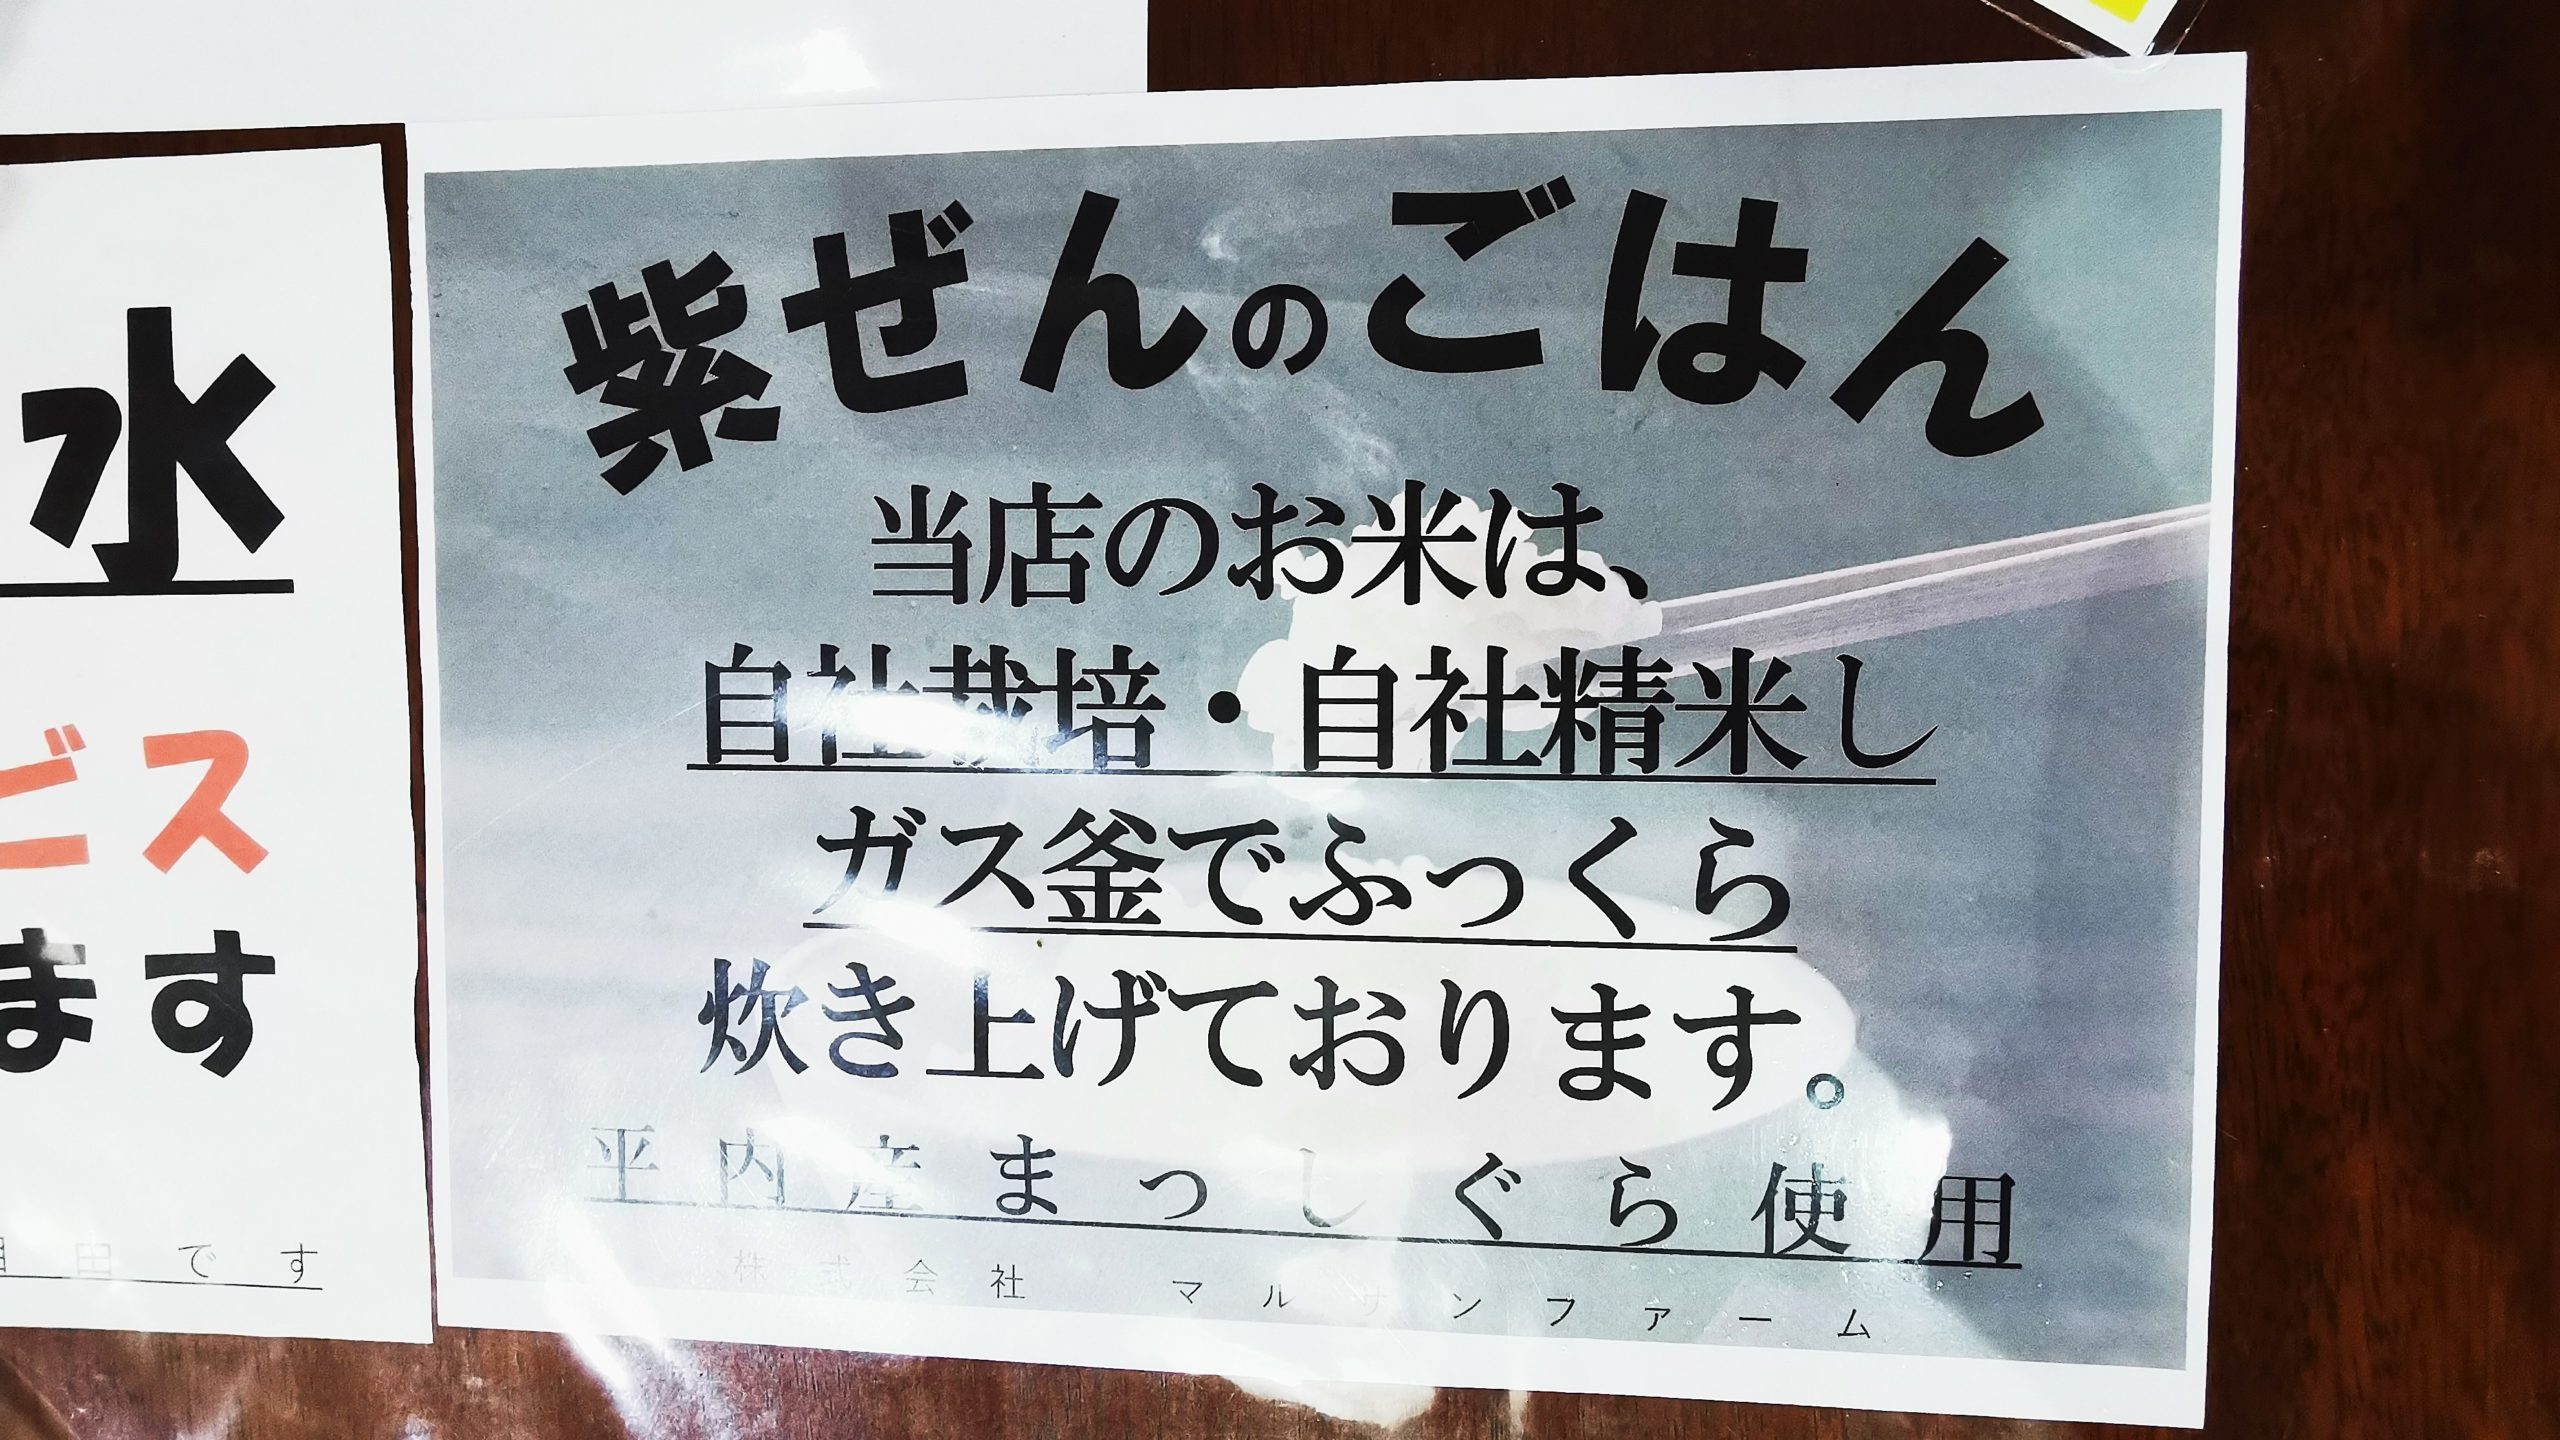 水
ビス
ます
田です
紫ぜんのごはん
当店のお米は、
自社栽培・自社精米し
ガス釜でふっくら
炊き上げております。
平内産まっしぐら使用
株式会社 マルサンファーム